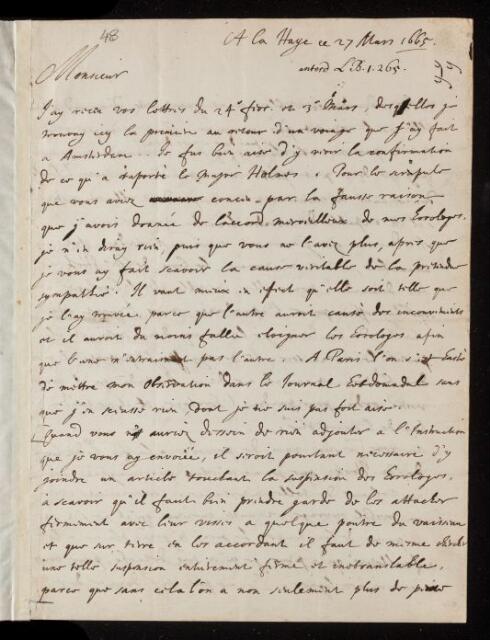 48
A la Haye ce 27 Mars 1665.
Monsieur
enterd L.B.1.265.
J'ay receu vos lettres du 24e fevr. et 3e Mars, desquelles je
trouvay icy la premiere au retour d'un voyage que j'ay fait
a Amsterdam. Je fus bien aise d'y voir la confirmation
de ce qu'a raporté le Major Holmes. Pour le scrupule
que vous aviez conceu par la fausse raison
que j'avois donnée de l'accord merveilleux de mes Horologes,
je n'en diray rien puis que vous ne l'avez plus, apres que
je vous ay fait scavoir la cause veritable de la pretendue
sympathie. Il vaut mieux en effect qu'elle soit telle que
je l'ay trouvée, parce que l'autre auroit causè des inconvenients
et il auroit du moins fallu eloigner les Horologes afin
que l'une n'entrainast pas l'autre. A Paris l'on s'est hasté
de mettre mon Observation dans le Journal Hebdomadal sans
que j'en sceusse rien dont je ne suis pas fort aise.
Quand vous n'auriez dessein de rien adjouter a l'Instruction
que je vous ay envoiée, il seroit pourtant necessaire d'y
joindre un article touchant la suspension des Horologes,
a scavoir qu'il faut bien prendre garde de les attacher
firmement avec leur visses a quelque poutre du vaisseau
et que sur terre en les accordant il faut de mesme
une telle suspension entierement firme et inebranlable,
parce que sans cela l'on a non seulement plus de peine